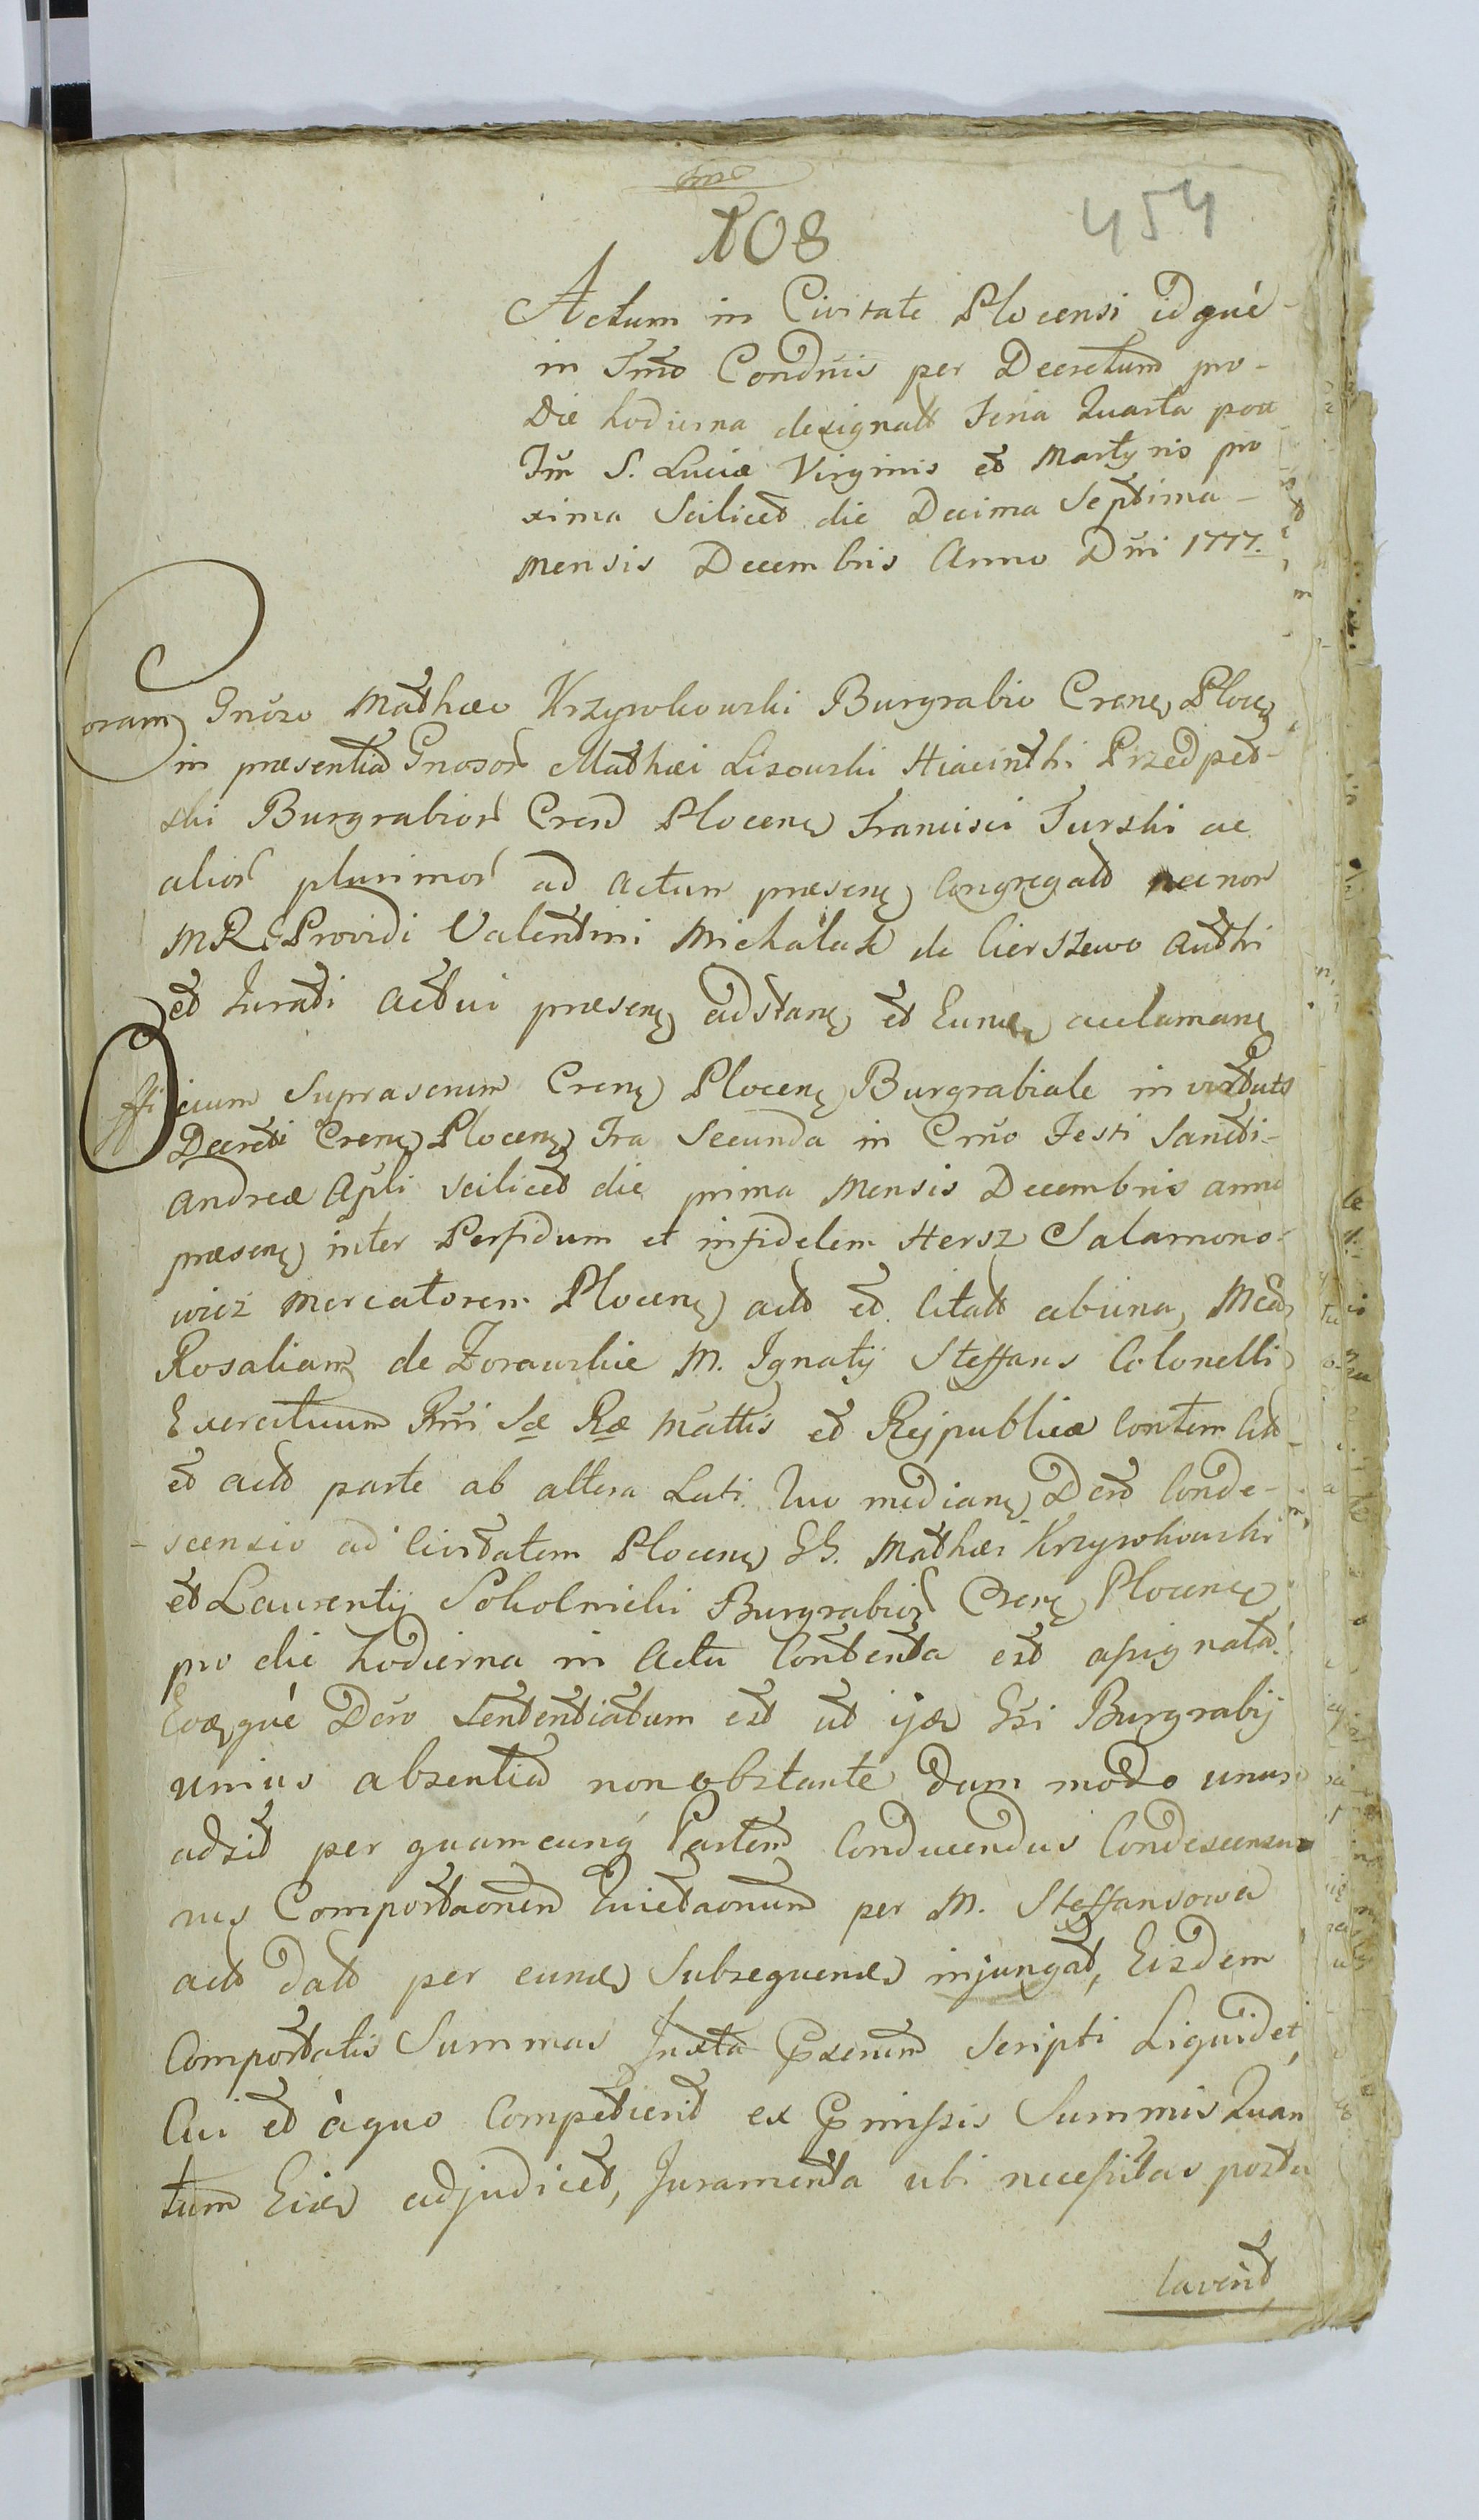 108
454
Actum in Civitate Plocensi idque
in Tmo Condnis per Decretum pro-
Die hodierna designatt Feria Quarta post
Ftm S. Luciæ Virginis et Martyris pro
xima Scilicet die Decima Septima
Mensis Decembris Anno Dni 1777.
Coram Gnoso Mathæo Krzywkowski Burgrabio Crens Plocens
in præsentia Gnosor Mathæi Lisowski Hiacinthi Przedpeł-
ski Burgrabior Cren Plocens Francisci Turski ac
alior plurimor ad Actum præsens Congregat nec non
MR Providi Valentini Michalak de Cierszewo Authi
et Jurati Actui præsens adstans et Eunde acclamans
Officium Suprascrium Crens Plocens Burgrabiale in virtute
Decreti Crens Plocens Fra Secunda in Crno Festi Sancti-
Andreæ Apli scilicet die prima Mensis Decembris anno
præsens inter Perfidum et infidelem Hersz Salamono-
wicz Mercatorem Plocens act et citatt ab una, Mcam
Rosaliam de Zorawskie M. Ignatij Steffans Colonelli
Exercituum Rmi Sæ Ræ Mattis et Reipublicæ Contem Citt
et act parte ab altera Lati. quo medians Dcrt Conde-
scensio ad Civitatem Plocens GG. Mathæi Krzywkowski
et Laurentij Sokolnicki Burgrabior Crens Plocens
pro die hodierna in Actu Contenta est assignata.
Eoque Dcro Sententiatum est ut ijde Gsi Burgrabij
unius absentia non obstante dum modo unus
adsit per quamcunq Partem Conducendus Condescensu-
rus Comportaonem Quietaonum per M. Steffansowa
act datt per eunde Subsequend injungat, Eisdem
Comportatis Summas Juxta Exenum Scripti Liquidet,
Cui et à quo Competierit ex Præmissis Summis Quan
tum Eide adjudicet, Juramenta ubi necessitas postu
laverit